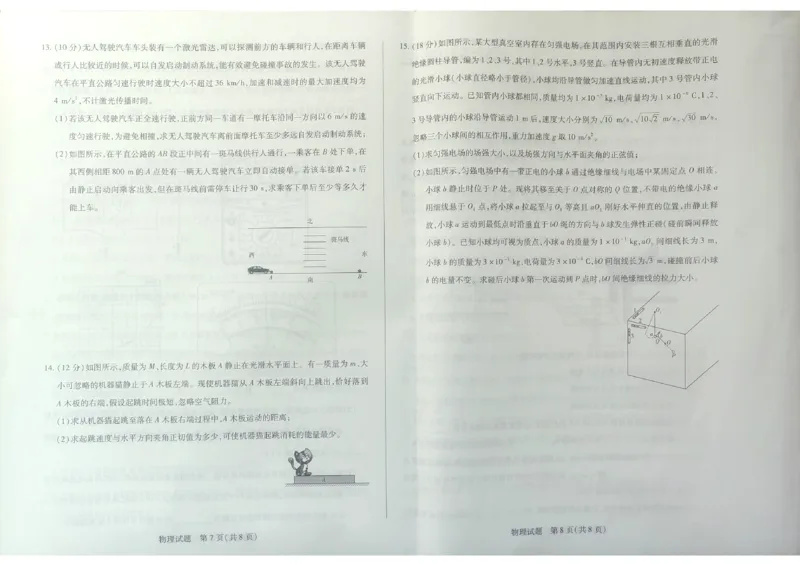 13.(10分)无人驾驶汽车车头装有一个激光雷达,可以探测前方的车辆和行人,在距离车辆
或行人比较近的时候,可以自发启动制动系统,能有效避免碰撞事故的发生。该无人驾驶
汽车在平直公路匀速行驶时速度大小不超过36 km/h,加速和减速时的最大加速度均为
4 m/s²,不计激光传播时间。
(1)若该无人驾驶汽车正全速行驶,正前方同一车道有一摩托车沿同一方向以6 m/s的速
度匀速行驶,为避免相撞,求无人驾驶汽车离前面摩托车至少多远自发启动制动系统;
(2)如图所示,在平直公路的AB段正中间有一斑马线供行人通行,一乘客在B处下单,在
其西侧相距800 m的A点处有一辆无人驾驶汽车立即自动接单。若该车接单2 s后
由静止启动向乘客出发,但在斑马线前需停车让行30 s,求乘客下单后至少等多久才
能上车。
北
斑马线
西
东
A
南
B
14.(12分)如图所示,质量为M、长度为L的木板A静止在光滑水平面上。有一质量为m、大
小可忽略的机器猫静止于A木板左端。现使机器猫从A木板左端斜向上跳出,恰好落到
A木板的右端,假设起跳时间极短,忽略空气阻力。
(1)求从机器猫起跳至落在A木板右端过程中,A木板运动的距离;
(2)求起跳速度与水平方向夹角正切值为多少,可使机器猫起跳消耗的能量最少。
A
物理试题 第7页(共8页)
15.(18分)如图所示,某大型真空室内存在匀强电场,在其范围内安装三根互相垂直的光滑
绝缘圆柱导管,编为1、2、3号,其中1、2号水平,3号竖直。在导管内无初速度释放带正电
的光滑小球(小球直径略小于管径),小球均沿导管做匀加速直线运动,其中3号管内小球
竖直向下运动。已知管内小球都相同,质量均为 kg,电荷量均为 C,1、2、
3号导管内的小球沿导管运动1 m后,速度大小分别为√10 m/s、√10√2 m/s、√30 m/s,
忽略三个小球间的相互作用,重力加速度g取10 m/s²。
(1)求匀强电场的场强大小,以及场强方向与水平面夹角的正弦值;
(2)如图所示,匀强电场中有一带正电的小球b通过绝缘细线与电场中某固定点O相连,
小球b静止时位于P处。现将其移至关于O点对称的Q位置,不带电的绝缘小球a
用细线悬于O₁点,将小球a拉起至与O₁等高且aO₁刚好水平伸直的位置,由静止释
放,小球a运动到最低点时沿垂直于bO绳的方向与b球发生弹性正碰(碰前瞬间释放
小球b)。已知小球均可视为质点,小球a的质量为 kg,aO₁间细线长为3 m,
小球b的质量为 kg、电荷量为 C,bO间细线长为√3 m,碰撞前后小球
b的电量不变。求碰后小球b第一次运动到P点时,bO间绝缘细线的拉力大小。
物理试题 第8页(共8页)